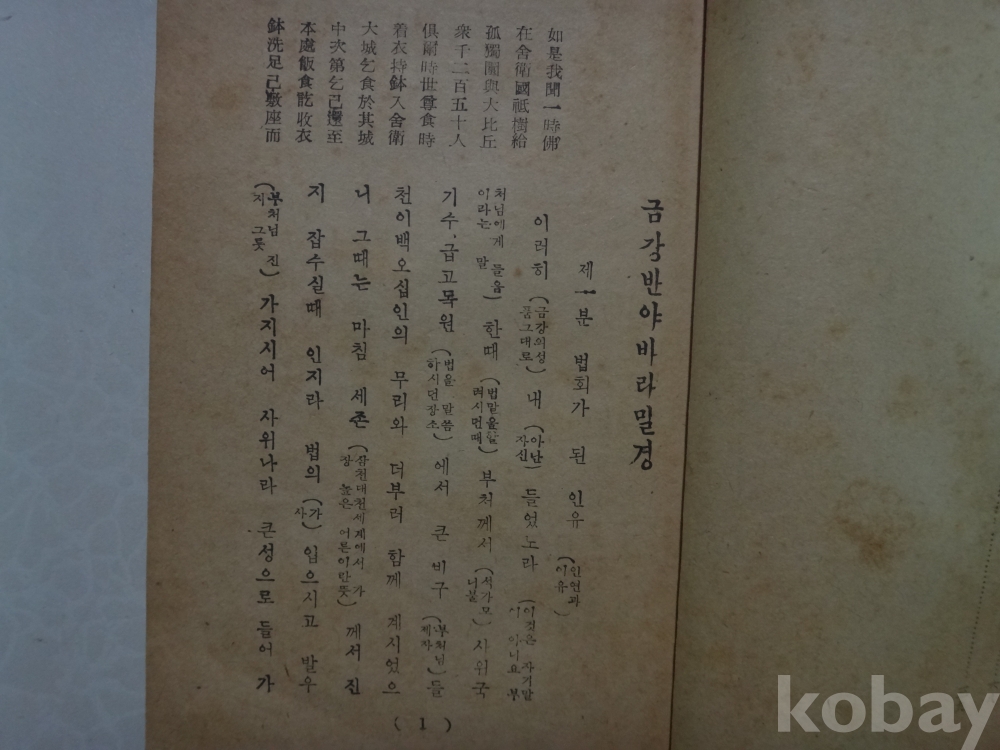 금강반야바라밀경
如是我聞一時佛
在舍衛國祗樹給
孤獨園與大比丘
衆千二百五十人
俱爾時世尊食時
着衣持鉢入舍衛
大城乞食於其城
中次第乞己還至
本處飯食訖收衣
鉢洗足己敷座而
제一분 법회가 된 인유 (인연과 이유)
이러히 (금강의성품그대로) 내 (아난자신) 들었노라 (이것은 자기말이 아니요 부
처님에게 들음이라는 말) 한때 (법말을할려시던때) 부처께서 (석가모니불) 사위국
기수、급고독원 (법을 말씀하시던장소) 에서 큰 비구 (부처님제자) 들
천이백오십인의 무리와 더부러 함께 계시었으
니 그때는 마침 세존 (삼천대천세계에서 가장 높은 어른이란뜻) 께서 진
지 잡수실때 인지라 법의 (가사) 입으시고 발우
(부처님 진지 그릇) 가지시어 사위나라 큰성으로 들어 가
( 1 )
kobay